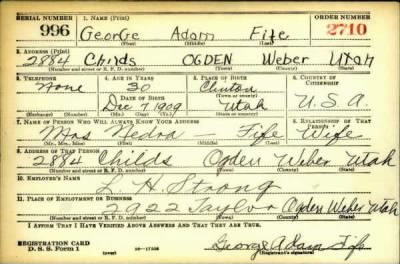 SERIAL NUMBER 1. NAME (Print) ORDER NUMBER
996 George Adam Fife 2710
(First) (Middle) (Last)
2. ADDRESS (Print)
2884 Childs OGDEN Weber Utah
(Number and street or R. F. D. number) (Town) (County) (State)
3. TELEPHONE 4. AGE IN YEARS 5. PLACE OF BIRTH 6. COUNTRY OF CITIZENSHIP
None 30 Clinton
DATE OF BIRTH (Town or county)
Dec 7 1909 Utah U.S.A.
(Mo.) (Day) (Yr.) (State or country)
7. NAME OF PERSON WHO WILL ALWAYS KNOW YOUR ADDRESS 8. RELATIONSHIP OF THAT PERSON
Mrs Nedra — Fife Wife
(Mr., Mrs., Miss) (First) (Middle) (Last)
9. ADDRESS OF THAT PERSON
2884 Childs Ogden Weber Utah
(Number and street or R. F. D. number) (Town) (County) (State)
10. EMPLOYER'S NAME
L. H. Strong
11. PLACE OF EMPLOYMENT OR BUSINESS
2922 Taylor Ogden Weber Utah
(Number and street or R. F. D. number) (Town) (County) (State)
I AFFIRM THAT I HAVE VERIFIED ABOVE ANSWERS AND THAT THEY ARE TRUE.
REGISTRATION CARD George Adam Fife
D. S. S. Form 1 (over) (Registrant's signature)